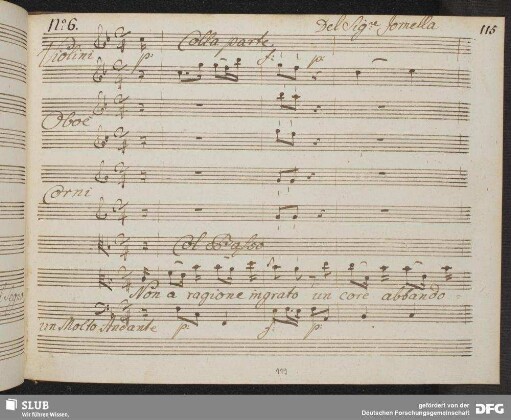 N.º 6.
Del Sig.re Jomella
115
Violini
Colla parte
p:
f:
p:
Oboe
Corni
Col Basso
Non a ragione ingrato un core abbando
un Molto Andante
p:
f:
p:
SLUB
Wir führen Wissen.
gefördert von der
Deutschen Forschungsgemeinschaft
DFG